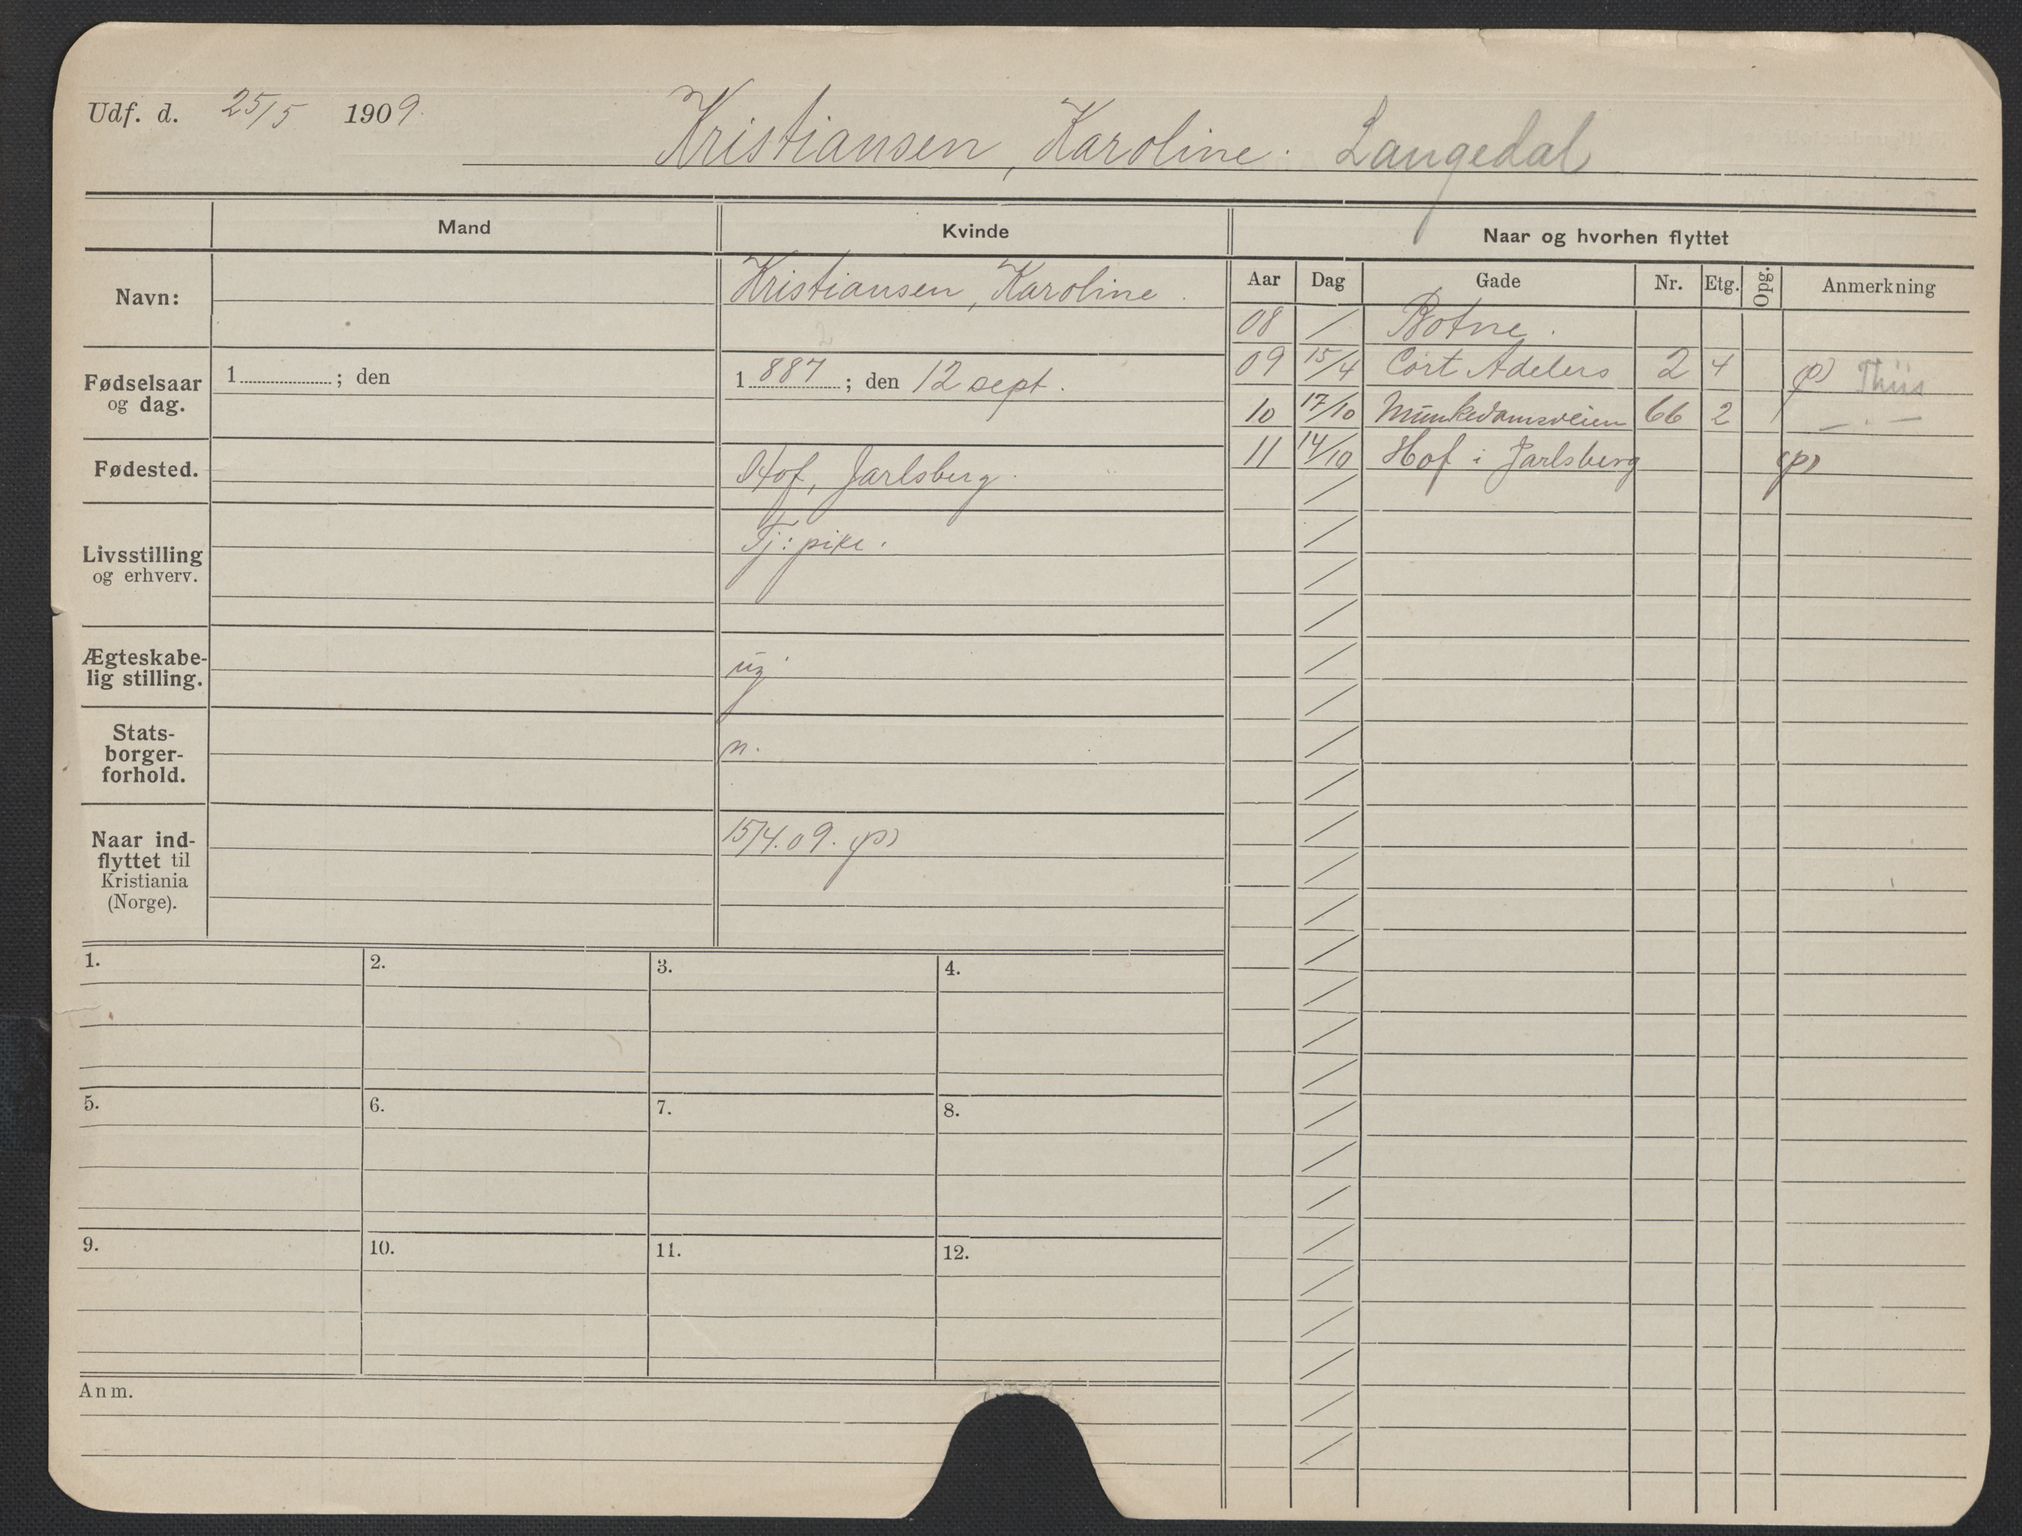 Udf. d. 25/5 1909.
Kristiansen, Karoline. Langedal
Mand
Kvinde
Navn:
Kristiansen, Karoline.
Fødselsaar og dag.
1 ; den
1 887 ; den 12 sept.
Fødested.
Hof, Jarlsberg.
Livsstilling og erhverv.
Tj: pike.
Ægteskabe-
lig stilling.
ug.
Stats-
borger-
forhold.
n.
Naar ind-
flyttet til
Kristiania
(Norge).
15/4. 09. (p)
1. 2. 3. 4.
5. 6. 7. 8.
9. 10. 11. 12.
Anm.
Naar og hvorhen flyttet
Aar Dag Gade Nr. Etg. Opg. Anmerkning
08 / Botne.
09 15/4 Cort Adelers 2 4 (p) Thiis
10 17/10 Munkedamsveien 66 2 — " —
11 14/10 Hof i Jarlsberg (p)